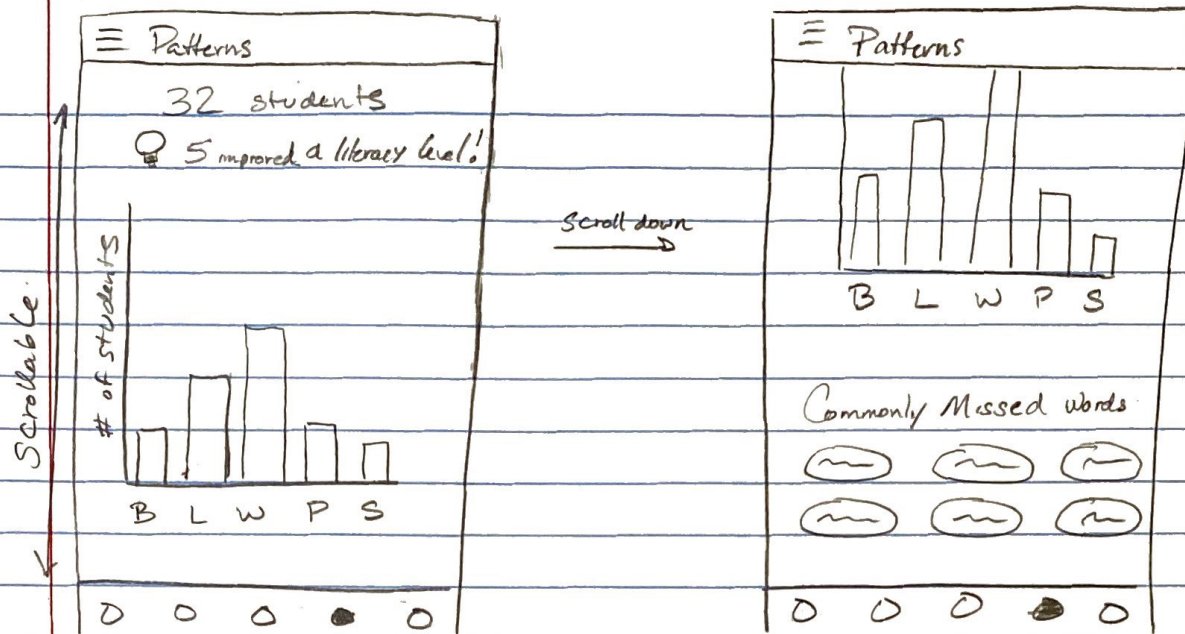 Patterns
32 students
5 improved a literacy level!
# of students
B L W P S
Scrollable
Scroll down
Patterns
B L W P S
Commonly Missed Words